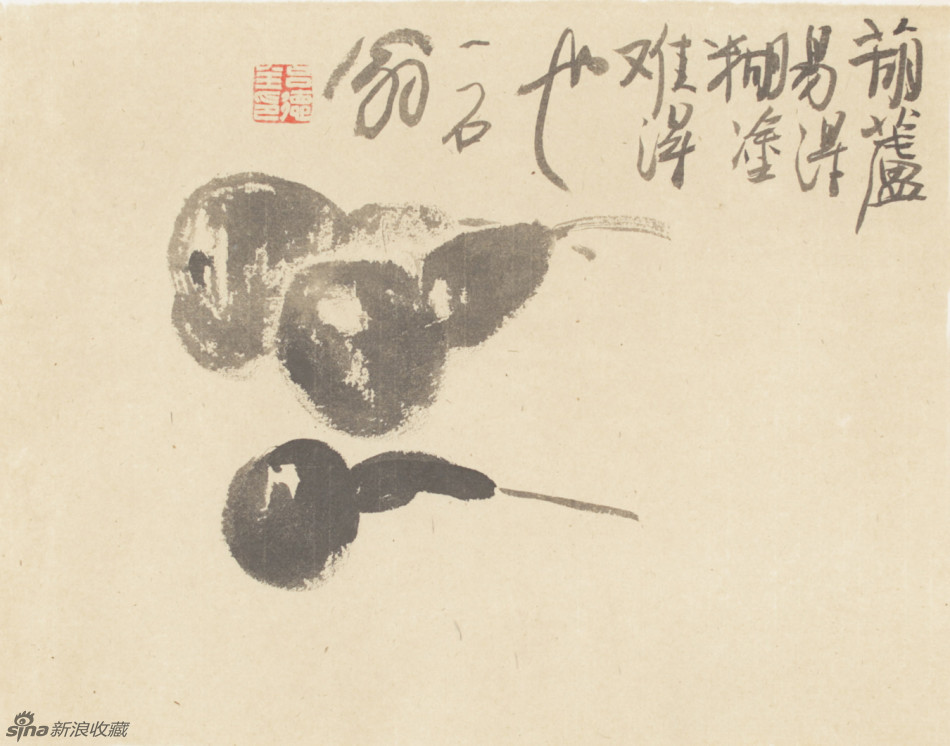 葫蘆
易得
糊塗
难得
也
一石
翁
sina新浪收藏